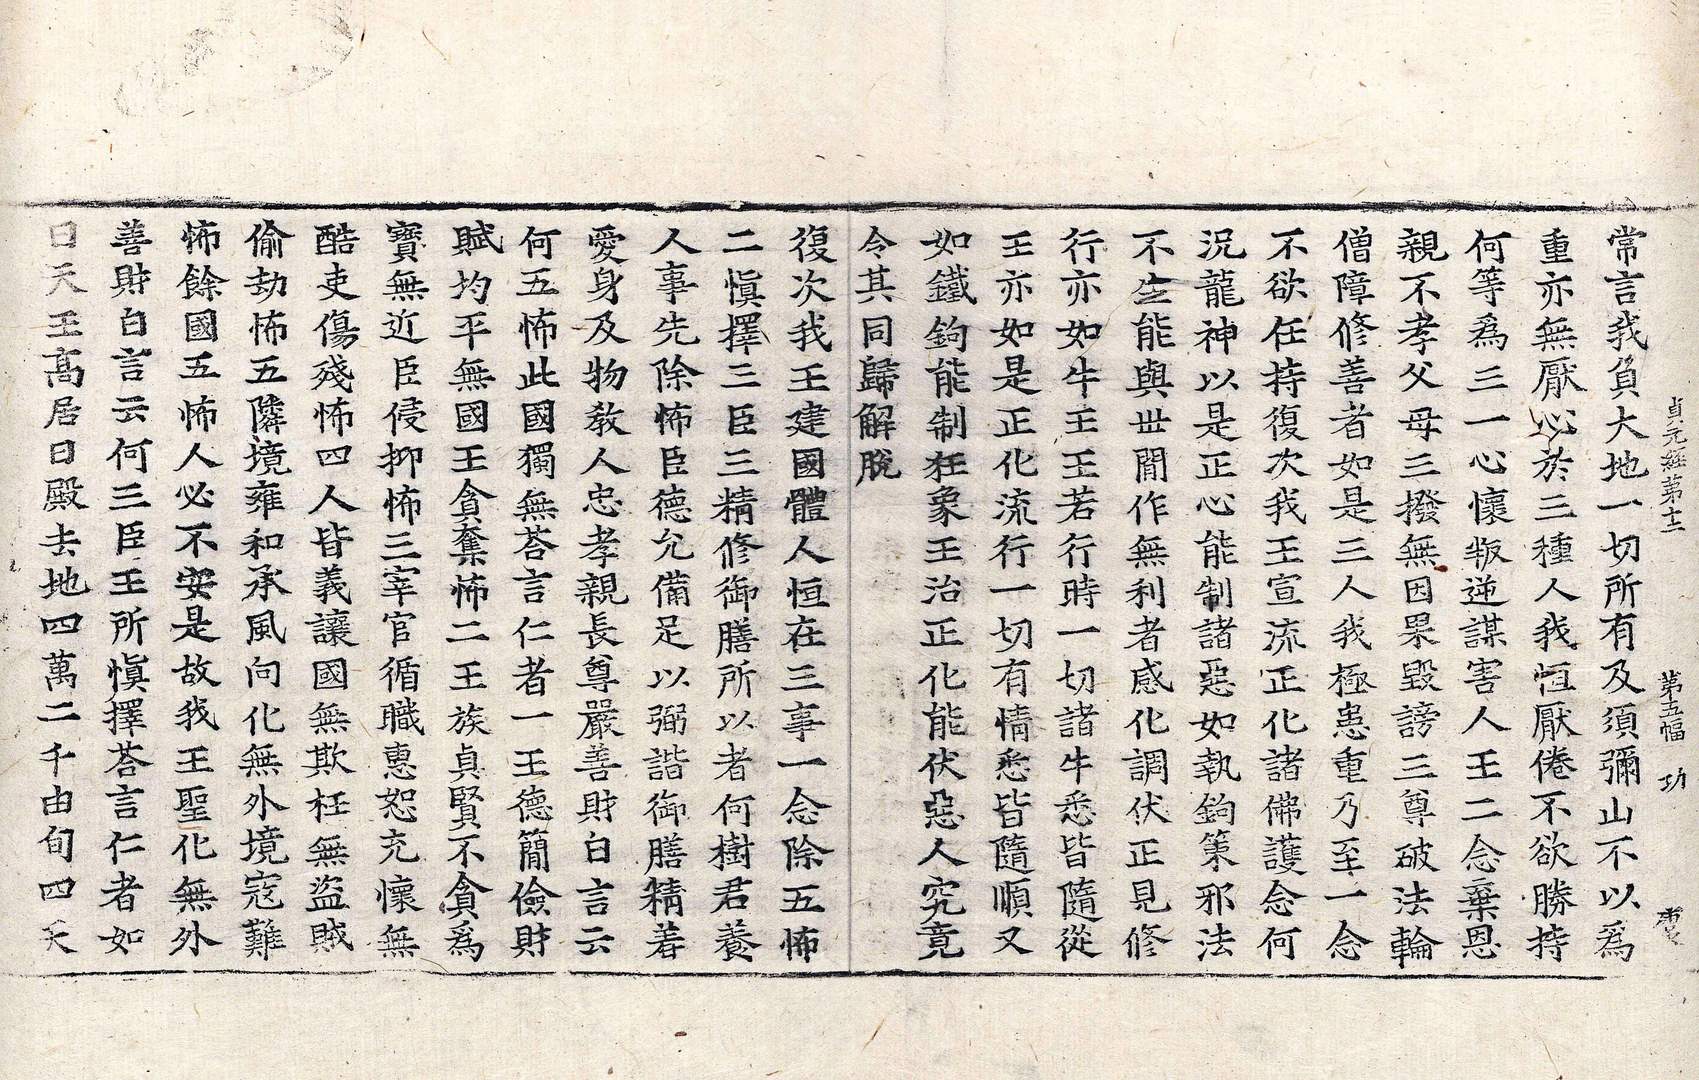 貞元經第十二 第五幅 功
常言我負大地一切所有及須彌山不以爲
重亦無厭心於三種人我恒厭倦不欲勝持
何等爲三一心懷叛逆謀害人王二念棄恩
親不孝父母三撥無因果毀謗三尊破法輪
僧障修善者如是三人我極患重乃至一念
不欲任持復次我王宣流正化諸佛護念何
況龍神以是正心能制諸惡如執鉤策邪法
不生能與世閒作無利者感化調伏正見修
行亦如牛王王若行時一切諸牛悉皆隨從
王亦如是正化流行一切有情悉皆隨順又
如鐵鉤能制狂象王治正化能伏惡人究竟
令其同歸解脫
復次我王建國體人恒在三事一念除五怖
二愼擇三臣三精修御膳所以者何樹君養
人事先除怖臣德允備足以弼諧御膳精若
愛身及物教人忠孝親長尊嚴善財白言云
何五怖此國獨無荅言仁者一王德簡儉財
賦均平無國王貪奪怖二王族貞賢不貪爲
寶無近臣侵抑怖三宰官循職惠恕充懷無
酷吏傷殘怖四人皆義讓國無欺枉無盜賊
偷劫怖五隣境雍和承風向化無外境寇難
怖餘國五怖人必不安是故我王聖化無外
善財白言云何三臣王所愼擇荅言仁者如
日天王高居日殿去地四萬二千由旬四天